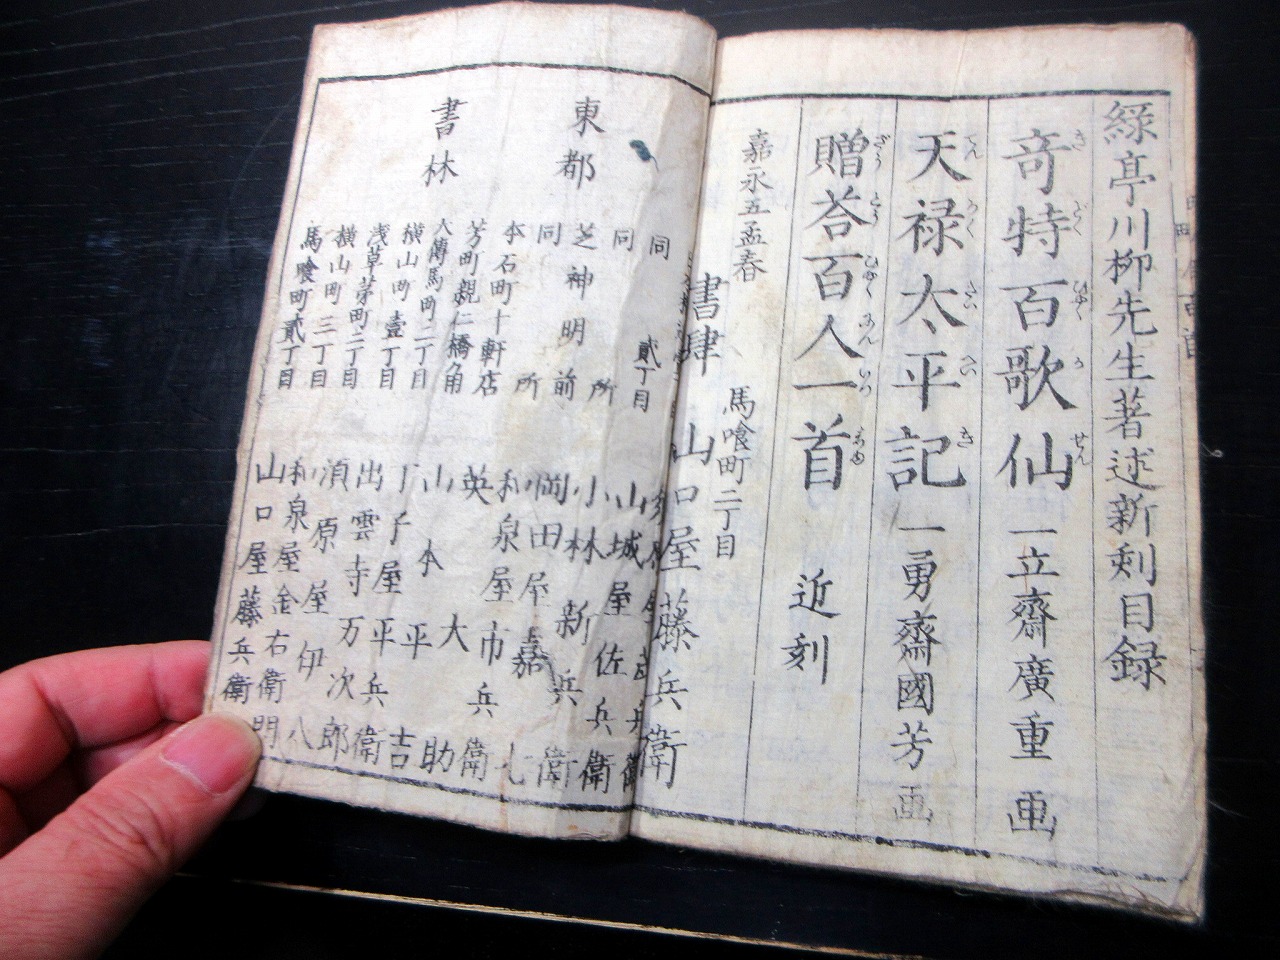 緑亭川柳先生著述新刻目録
奇特百歌仙 一立齋廣重画
きどくひやくかせん
天禄太平記 一勇齋國芳画
てんろくたいへいき
贈答百人一首 近刻
ぞうとうひやくにんいつしゆ
嘉永五孟春
馬喰町二丁目
書肆 山口屋藤兵衛
東都
書林
同 貳丁目 山城屋佐兵衛
同 所 小林新兵衛
芝神明前 岡田屋嘉七
同 所 和泉屋市兵衛
本石町十軒店 英大助
芳町親仁橋角 山本平吉
大傳馬町二丁目 丁子屋平兵衛
横山町壹丁目 出雲寺万次郎
浅草茅町二丁目 須原屋伊八
横山町三丁目 和泉屋金右衛門
馬喰町貳丁目 山口屋藤兵衛